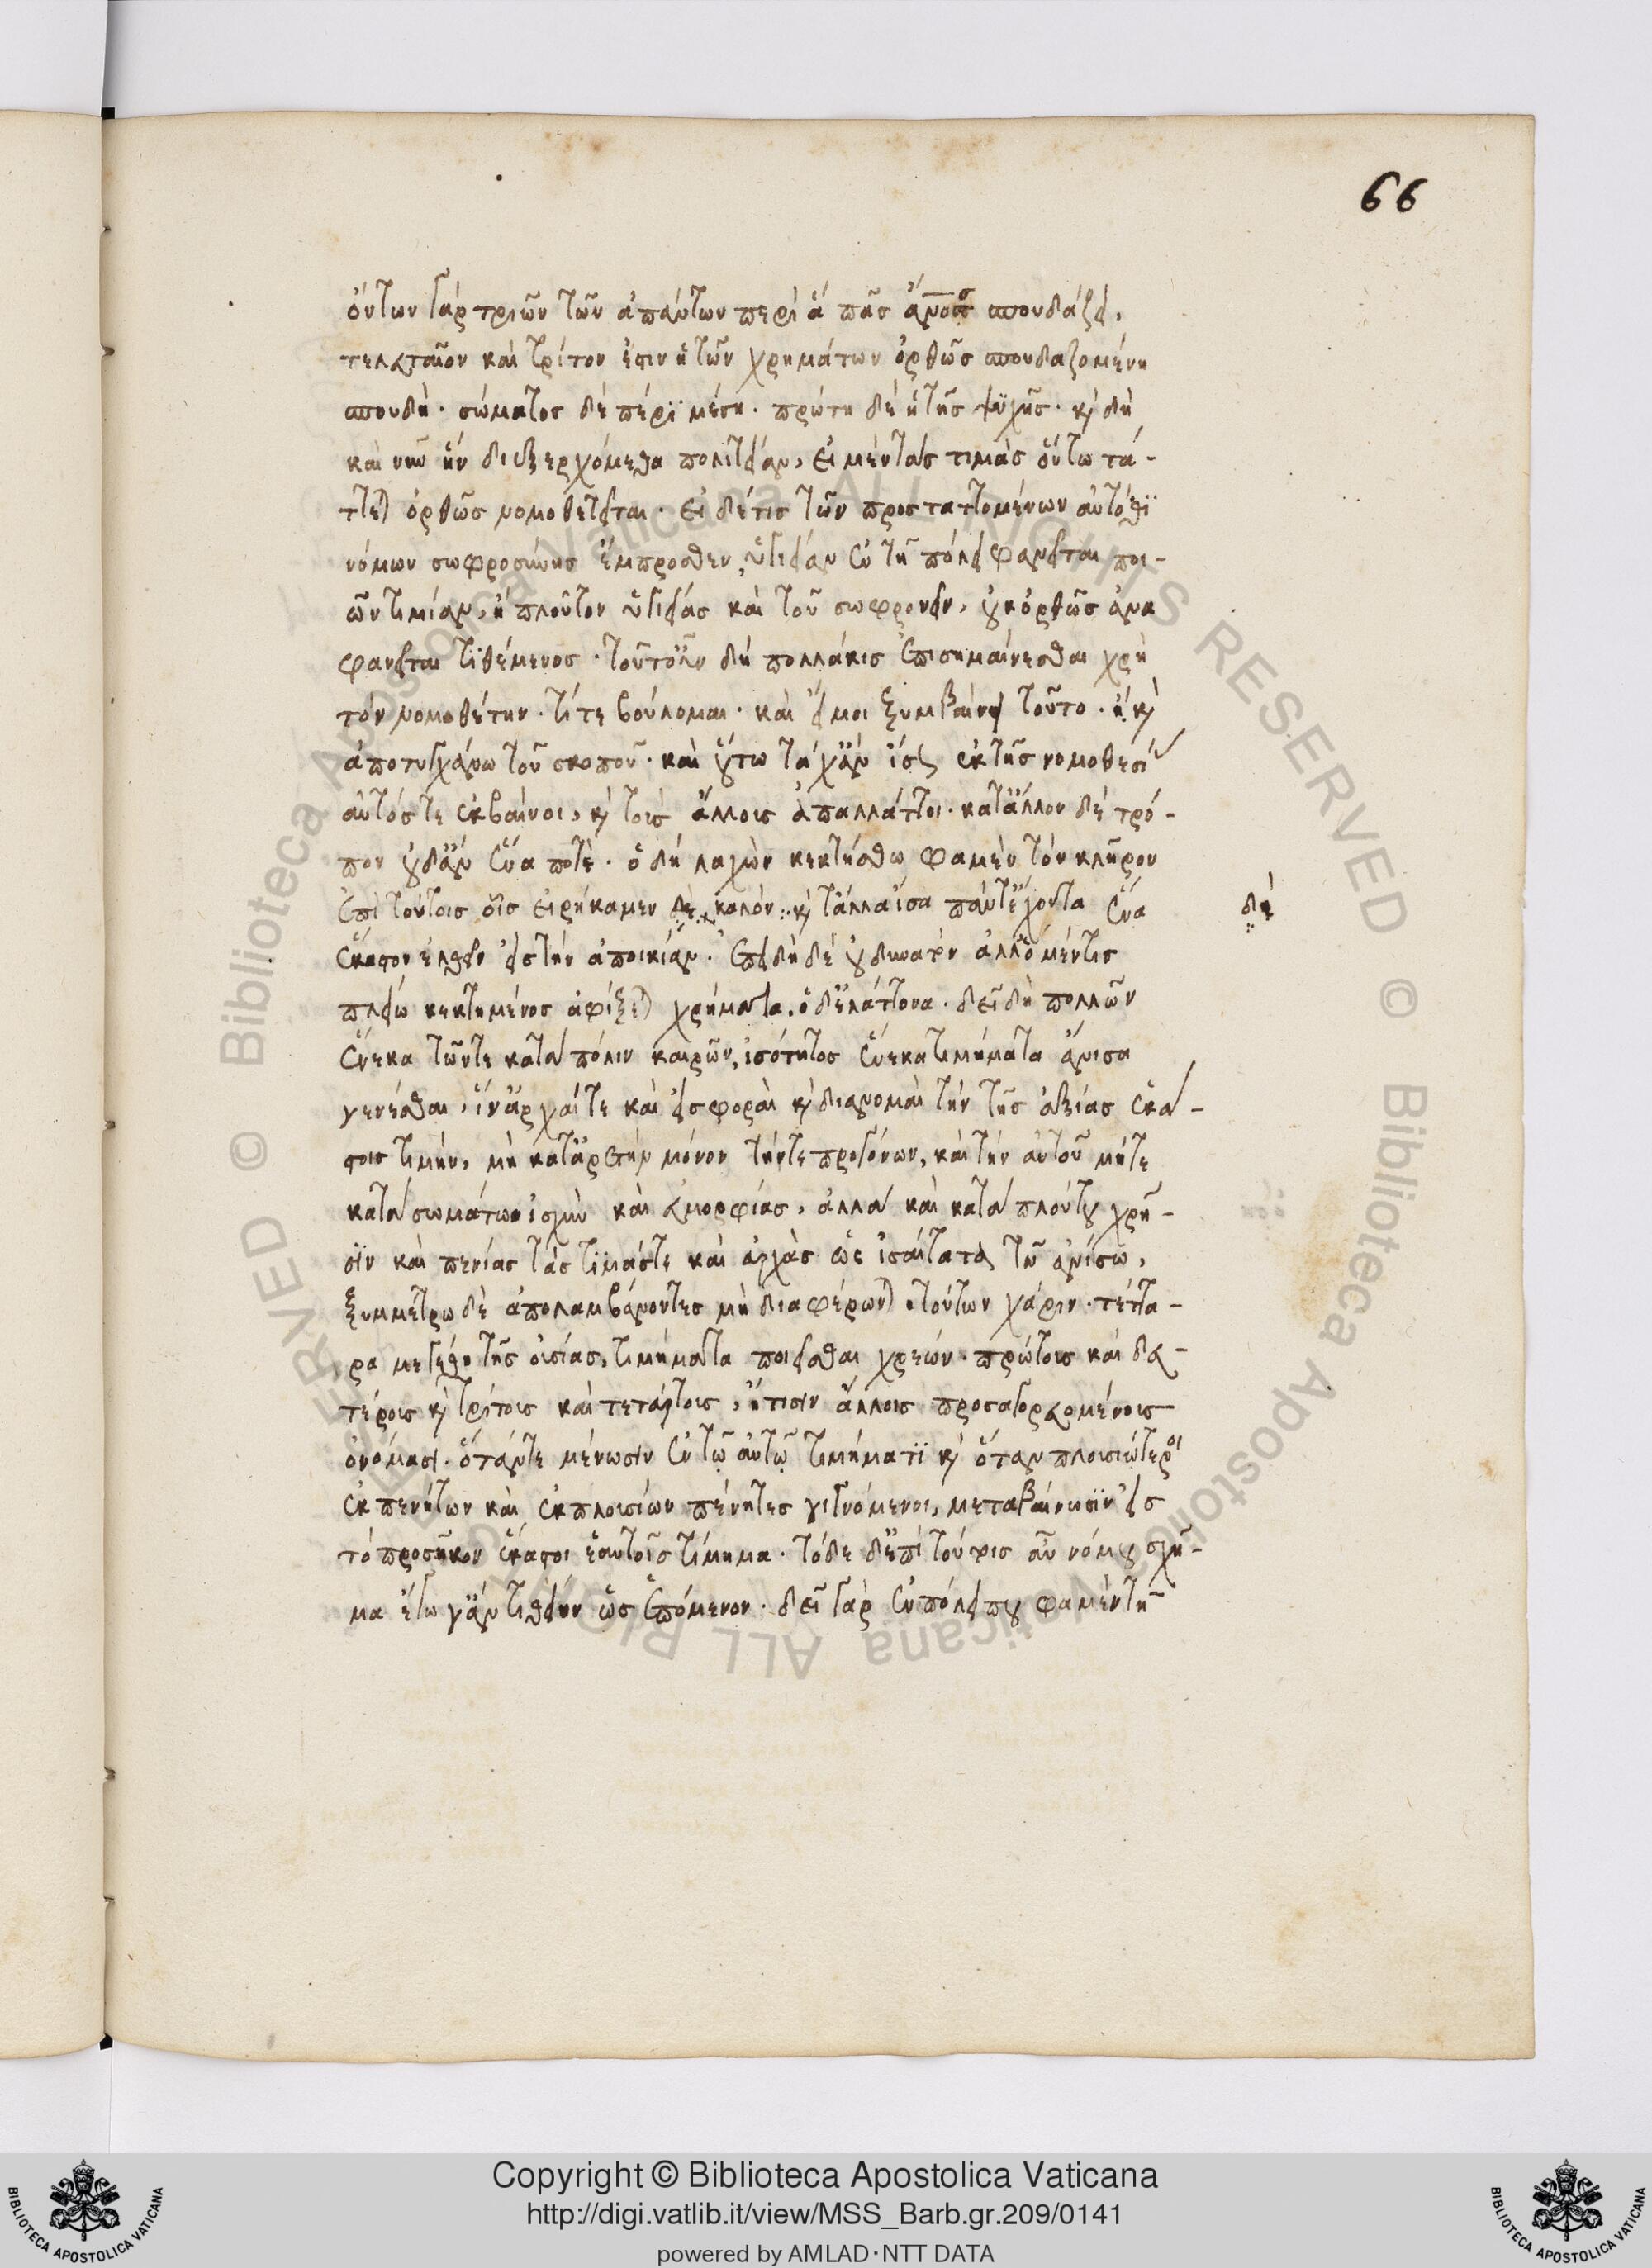 66
ὄντων γὰρ τριῶν τῶν ἁπάντων περὶ ἃ πᾶσ ἄνοσ σπουδάζει,
τελευταῖον καὶ τρίτον ἐστὶν ἡ τῶν χρημάτων ὀρθῶσ σπουδαζομένη
σπουδὴ · σώματος δὲ πέρϊ μέση · πρώτη δὲ ἡ τῆς ψυχῆς · κὶ δὴ
καὶ νῦν ἣν διεξερχόμεθα πολιτείαν, εἰ μὲν τὰς τιμὰς οὕτω τά-
τεται ὀρθῶς νομοθετεῖται · εἰ δέ τις τῶν προσταττομένων αὐτόθϊ
νόμων σωφροσύνης ἔμπροσθεν, ὑγιείαν ἐν τῇ πόλει φανεῖται ποι-
ῶν τιμίαν, ἢ πλοῦτον ὑγιείας καὶ τοῦ σωφρονεῖν, οὐκ ὀρθῶς ἀνα
φανεῖται τιθέμενος · τοῦτ' οὖν δὴ πολλάκις ἐπισημαίνεσθαι χρὴ
τὸν νομοθέτην · τί τε βούλομαι · καὶ εἴ μοι ξυμβαίνει τοῦτο · ἢ κὶ
ἀποτυγχάνω τοῦ σκοποῦ · καὶ οὕτω τάχ' ἂν ἴσως ἐκ τῆς νομοθεσί
αὐτός τε ἐκβαίνοι, κὶ τοὺς ἄλλους ἀπαλλάττοι · κατ' ἄλλον δὲ τρό-
πον οὐδ' ἂν ἕνα ποτέ · ὁ δὴ λαχὼν κεκτήσθω φαμὲν τὸν κλῆρον
ἐπὶ τούτοις οἷς εἰρήκαμεν δὲ καλὸν κὶ τἄλλα ἴσα πάντ' ἔχοντα ἕνα
δή
ἕκαστον ἐλθεῖν εἰς τὴν ἀποικίαν · ἐπειδὴ δὲ οὐ δυνατὸν ἀλλ' ὁ μέν τις
πλείω κεκτημένος ἀφίξεται χρήματα, ὁ δ' ἐλάττονα · δεῖ δὴ πολλῶν
ἕνεκα τῶν τε κατὰ πόλιν καιρῶν, ἰσότητος ἕνεκα τιμήματα ἄνισα
γενέσθαι, ἵν' ἀρχαί τε καὶ εἰσφοραὶ κὶ διανομαὶ τὴν τῆς ἀξίας ἑκά-
στοις τιμὴν, μὴ κατ' ἀρετὴν μόνον τήν τε προγόνων, καὶ τὴν αὐτοῦ μήτε
κατὰ σωμάτων ἰσχὺν καὶ εὐμορφίας, ἀλλὰ καὶ κατὰ πλούτου χρῆ-
σϊν καὶ πενίας τὰς τιμάς τε καὶ ἀρχὰς ὡς ἰσαίτατα τῷ ἀνίσω,
ξυμμέτρω δὲ ἀπολαμβάνοντες μὴ διαφέρωνται · τούτων χάριν · τέττα-
ρα μεγέθη τῆς οὐσίας, τιμήματα ποιεῖσθαι χρεών · πρώτους καὶ δευ-
τέρους κὶ τρίτους καὶ τετάρτους, ἤ τισιν ἄλλοις προσαγορευομένους
ὀνόμασι · ὅταν τε μένωσιν ἐν τῷ αὐτῷ τιμήματϊ κὶ ὅταν πλουσιώτεροι
ἐκ πενήτων καὶ ἐκ πλουσίων πένητες γιγνόμενοι, μεταβαίνωσϊν εἰς
τὸ προσῆκον ἕκαστοι ἑαυτοῖς τίμημα · τόδε δ' ἐπὶ τούτοις αὖ νόμου σχῆ-
μα ἔγωγ' ἂν τιθείην ὡς ἑπόμενον · δεῖ γὰρ ἐν πόλει που φαμὲν τῇ
Copyright © Biblioteca Apostolica Vaticana
http://digi.vatlib.it/view/MSS_Barb.gr.209/0141
powered by AMLAD·NTT DATA